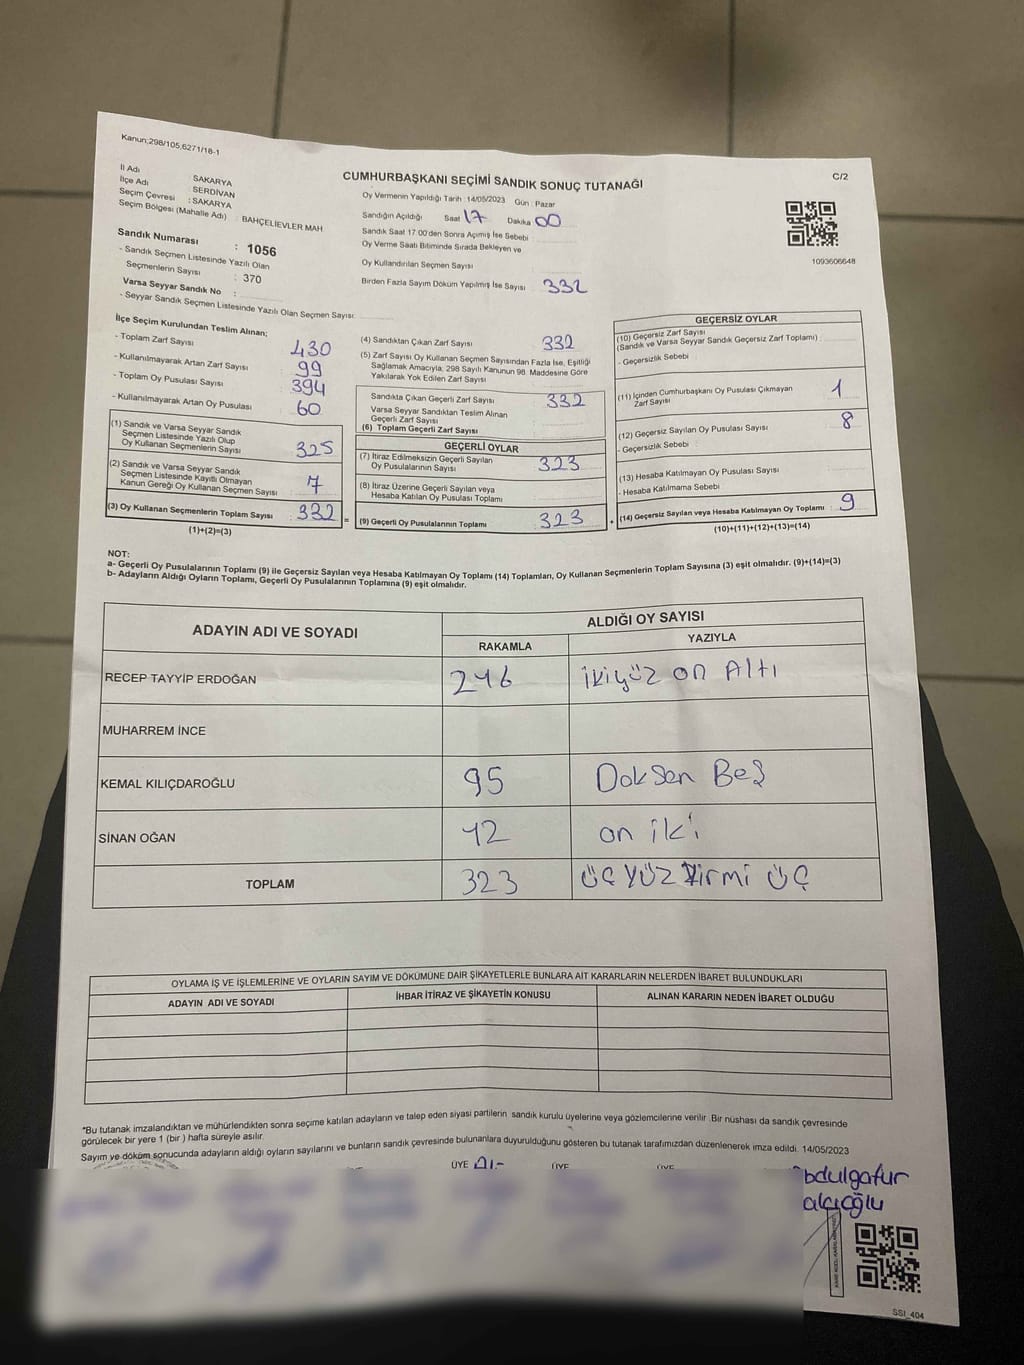 Kanun;298/105,6271/18-1
İl Adı : SAKARYA
İlçe Adı : SERDİVAN
Seçim Çevresi : SAKARYA
Seçim Bölgesi (Mahalle Adı) : BAHÇELİEVLER MAH
Sandık Numarası : 1056
- Sandık Seçmen Listesinde Yazılı Olan
Seçmenlerin Sayısı : 370
Varsa Seyyar Sandık No :
- Seyyar Sandık Seçmen Listesinde Yazılı Olan Seçmen Sayısı:
CUMHURBAŞKANI SEÇİMİ SANDIK SONUÇ TUTANAĞI
C/2
Oy Vermenin Yapıldığı Tarih :14/05/2023 Gün : Pazar
Sandığın Açıldığı Saat 17 Dakika 00
Sandık Saat 17:00'den Sonra Açımış İse Sebebi
Oy Verme Saati Bitiminde Sırada Bekleyen ve
Oy Kullandırılan Seçmen Sayısı
Birden Fazla Sayım Döküm Yapılmış İse Sayısı 332
1093606648
İlçe Seçim Kurulundan Teslim Alınan;
- Toplam Zarf Sayısı 430
- Kullanılmayarak Artan Zarf Sayısı 99
- Toplam Oy Pusulası Sayısı 394
- Kullanılmayarak Artan Oy Pusulası 60
(1) Sandık ve Varsa Seyyar Sandık
Seçmen Listesinde Yazılı Olup
Oy Kullanan Seçmenlerin Sayısı : 325
(2) Sandık ve Varsa Seyyar Sandık
Seçmen Listesinde Kayıtlı Olmayan
Kanun Gereği Oy Kullanan Seçmen Sayısı : 7
(3) Oy Kullanan Seçmenlerin Toplam Sayısı : 332 =
(1)+(2)=(3)
(4) Sandıktan Çıkan Zarf Sayısı 332
(5) Zarf Sayısı Oy Kullanan Seçmen Sayısından Fazla İse, Eşitliği
Sağlamak Amacıyla, 298 Sayılı Kanunun 98. Maddesine Göre
Yakılarak Yok Edilen Zarf Sayısı
Sandıkta Çıkan Geçerli Zarf Sayısı 332
Varsa Seyyar Sandıktan Teslim Alınan
Geçerli Zarf Sayısı
(6) Toplam Geçerli Zarf Sayısı
GEÇERLİ OYLAR
(7) İtiraz Edilmeksizin Geçerli Sayılan
Oy Pusulalarının Sayısı 323
(8) İtiraz Üzerine Geçerli Sayılan veya
Hesaba Katılan Oy Pusulası Toplamı
(9) Geçerli Oy Pusulalarının Toplamı 323 +
GEÇERSİZ OYLAR
(10) Geçersiz Zarf Sayısı
(Sandık ve Varsa Seyyar Sandık Geçersiz Zarf Toplamı) :
- Geçersizlik Sebebi
(11) İçinden Cumhurbaşkanı Oy Pusulası Çıkmayan
Zarf Sayısı 1
(12) Geçersiz Sayılan Oy Pusulası Sayısı 8
- Geçersizlik Sebebi :
(13) Hesaba Katılmayan Oy Pusulası Sayısı
- Hesaba Katılmama Sebebi
(14) Geçersiz Sayılan veya Hesaba Katılmayan Oy Toplamı : 9
(10)+(11)+(12)+(13)=(14)
NOT:
a- Geçerli Oy Pusulalarının Toplamı (9) ile Geçersiz Sayılan veya Hesaba Katılmayan Oy Toplamı (14) Toplamları, Oy Kullanan Seçmenlerin Toplam Sayısına (3) eşit olmalıdır. (9)+(14)=(3)
b- Adayların Aldığı Oyların Toplamı, Geçerli Oy Pusulalarının Toplamına (9) eşit olmalıdır.
ADAYIN ADI VE SOYADI ALDIĞI OY SAYISI
RAKAMLA YAZIYLA
RECEP TAYYİP ERDOĞAN 216 ikiyüz on Altı
MUHARREM İNCE
KEMAL KILIÇDAROĞLU 95 Doksan Beş
SİNAN OĞAN 12 on iki
TOPLAM 323 üç yüz Yirmi üç
OYLAMA İŞ VE İŞLEMLERİNE VE OYLARIN SAYIM VE DÖKÜMÜNE DAİR ŞİKAYETLERLE BUNLARA AİT KARARLARIN NELERDEN İBARET BULUNDUKLARI
ADAYIN ADI VE SOYADI İHBAR İTİRAZ VE ŞİKAYETİN KONUSU ALINAN KARARIN NEDEN İBARET OLDUĞU
*Bu tutanak imzalandıktan ve mühürlendikten sonra seçime katılan adayların ve talep eden siyasi partilerin sandık kurulu üyelerine veya gözlemcilerine verilir .Bir nüshası da sandık çevresinde
görülecek bir yere 1 (bir ) hafta süreyle asılır.
Sayım ve döküm sonucunda adayların aldığı oyların sayılarını ve bunların sandık çevresinde bulunanlara duyurulduğunu gösteren bu tutanak tarafımızdan düzenlenerek imza edildi. 14/05/2023
ÜYE ÜYE ÜYE
bdulgafur
alçıoğlu
SSI_404